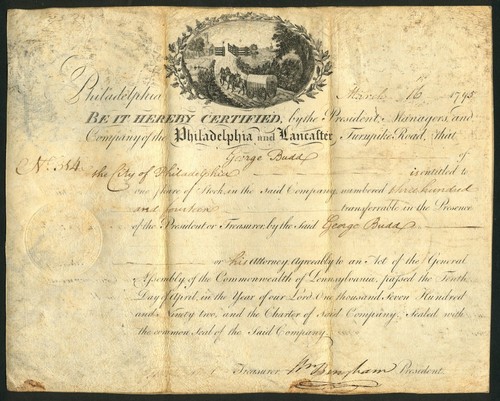 Philadelphia March 16th 1795
BE IT HEREBY CERTIFIED, by the President, Managers, and
Company of the Philadelphia and Lancaster Turnpike Road, that
George Budd of
No. 314 the City of Philadelphia is entitled to
one Share of Stock in the Said Company, numbered three hundred
and fourteen transferrable in the Presence
of the President or Treasurer, by the Said George Budd
or his Attorney. Agreeably to an Act of the General
Assembly of the Commonwealth of Pennsylvania, passed the Ninth
Day of April, in the Year of our Lord One thousand Seven Hundred
and Ninety two, and the Charter of Said Company, Sealed with
the common Seal of the Said Company.
Treasurer. Wm Bingham President.